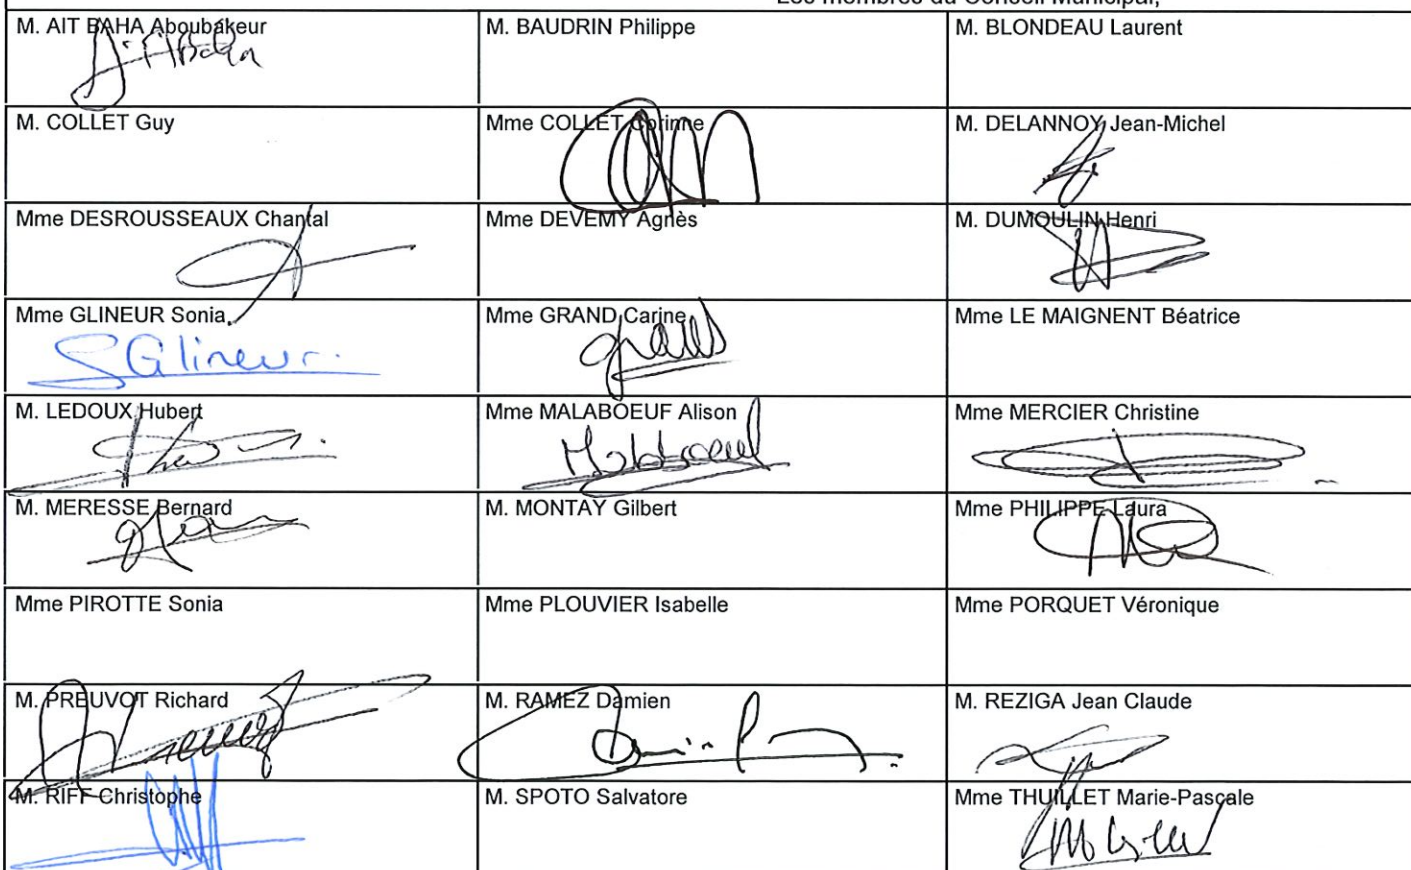 Les membres du Conseil Municipal,
M. AIT BAHA Aboubakeur
M. BAUDRIN Philippe
M. BLONDEAU Laurent
M. COLLET Guy
Mme COLLET Corinne
M. DELANNOY Jean-Michel
Mme DESROUSSEAUX Chantal
Mme DEVEMY Agnès
M. DUMOULIN Henri
Mme GLINEUR Sonia
SGlineur.
Mme GRAND Carine
Mme LE MAIGNENT Béatrice
M. LEDOUX Hubert
Mme MALABOEUF Alison
Mme MERCIER Christine
M. MERESSE Bernard
M. MONTAY Gilbert
Mme PHILIPPE Laura
Mme PIROTTE Sonia
Mme PLOUVIER Isabelle
Mme PORQUET Véronique
M. PREUVOT Richard
M. RAMEZ Damien
M. REZIGA Jean Claude
M. RIFF Christophe
M. SPOTO Salvatore
Mme THUILLET Marie-Pascale